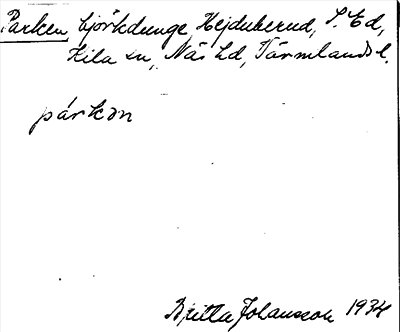 Parken, björkdunge, Hejdukerud, S. Ed,
Kila sn, Näs hd, Värmlands l.
párkən
Britta Johansson 1934